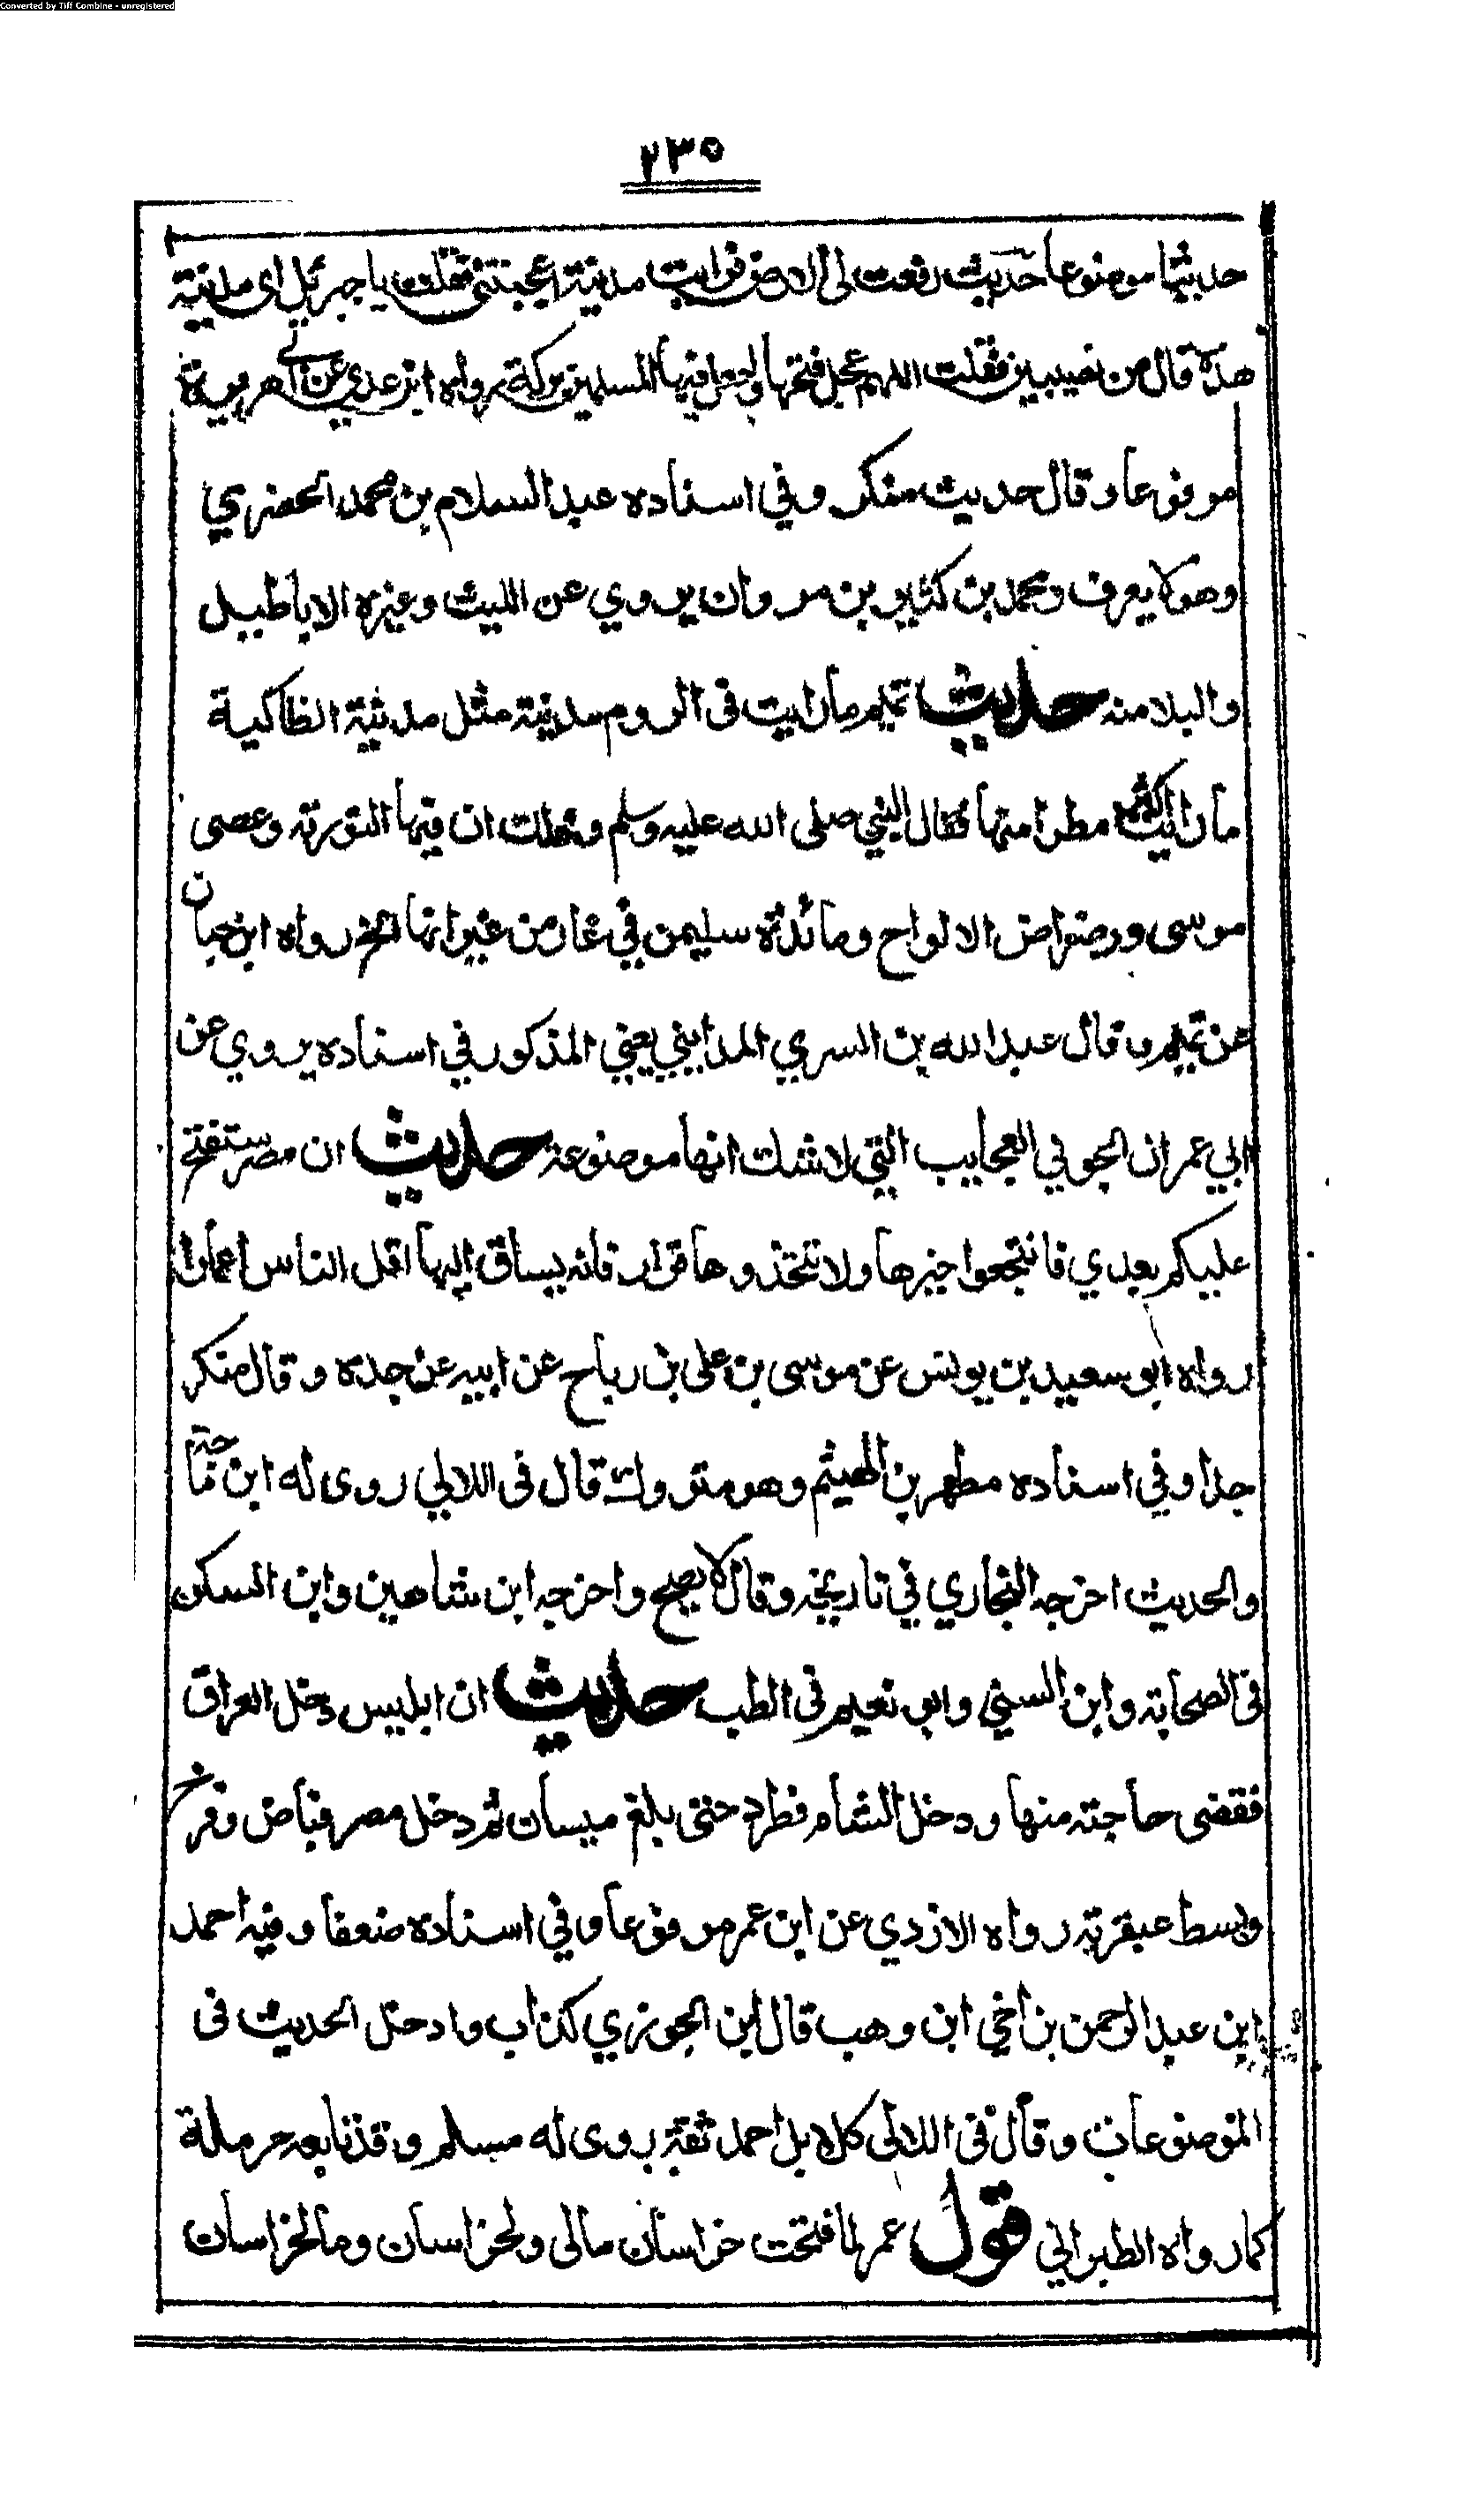 Converted by Tiff Combine - unregistered
٢٣٥
حديثها موضوعا حديث رفعت لي الارض فرايت مدينة اعجبتني فقلت يا جبرئيل اي مدينة
هذه قال من نصيبين فقلت اللهم عجل فتحها واجعل فيها للمسلمين بركة رواه ابن عدي عن ابي هريرة
مرفوعا وقال حديث منكر وفي اسناده عبد السلام بن محمد الحضرمي
وهو لا يعرف ومحمد بن كثير بن مروان يروي عن الليث وغيره الاباطيل
والبلا منه حديث تميم ما رايت في الروم مدينة مثل مدينة انطاكية
ما رايت اكثر مطرا منها فقال النبي صلى الله عليه وسلم وذلك ان فيها التورية وعصى
موسى ورضراض الالواح ومائدة سليمن في غار من غيرانها الخ رواه ابن حبان
عن تميم وقال عبد الله بن السري المدايني يعني المذكور في اسناده يروي عن
ابي عمران الجوني العجايب التي لا شك انها موضوعة حديث ان مصر ستفتح
عليكم بعدي فانتجعوا خيرها ولا تتخذوها قرار فانه يساق اليها اقل الناس اعمارا
رواه ابو سعيد بن يونس عن موسى بن على بن رباح عن ابيه عن جده وقال منكر
جدا وفي اسناده مطهر بن الهيثم وهو متروك قال في اللالي روى له ابن ماجة
والحديث اخرجه البخاري في تاريخه وقال لا يصح واخرجه ابن شاهين وابن السكن
في الصحابة وابن السني وابو نعيم في الطب حديث ان ابليس دخل العراق
فقضى حاجته منها ودخل الشام فطرد حتى بلغ ميسان ثم دخل مصر فباض وفرخ
وبسط عبقريه رواه الازدي عن ابن عمر مرفوعا وفي اسناده ضعفا وفيه احمد
ابن عبد الرحمن بن اخي ابن وهب قال ابن الجوزي كذاب وادخل الحديث في
الموضوعات وقال في اللالى كلا بل احمد ثقة روى له مسلم وقد تابعه حرملة
كما رواه الطبراني قول عمر لما فتحت خراسان مالى ولخراسان وما لخراسان